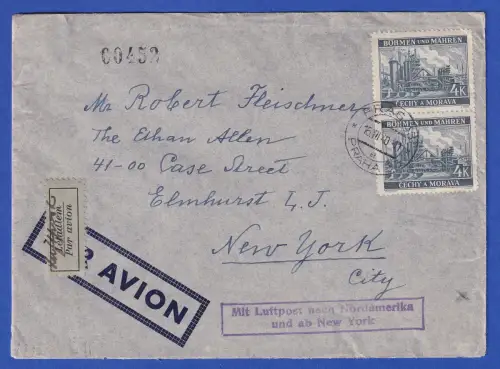 60452
BÖHMEN UND MÄHREN
4K
ČECHY A MORAVA
BÖHMEN UND MÄHREN
4K
ČECHY A MORAVA
PRAHA
Mr Robert Fleischner
The Ethan Allen
41-00 Case Street
Elmhurst L.I.
New York
City
Par avion
AVION
Mit Luftpost nach Nordamerika
und ab New York